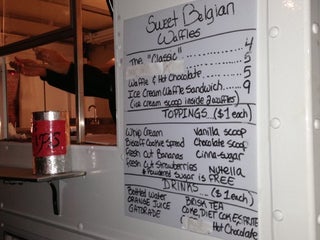 Sweet Belgian
Waffles
4
The "Classic" ........ 5
Waffle & Hot Chocolate ..... 5
Ice Cream Waffle Sandwich.... 9
(ice cream scoop inside 2 waffles)
TOPPINGS ($1 each)
Whip Cream Vanilla scoop
Biscoff Cookie Spread Chocolate scoop
Fresh Cut Bananas Cinna-sugar
Fresh Cut Strawberries Nutella
& Powdered Sugar is FREE
DRINKS ... ($1 each)
Bottled Water BRISK TEA
ORANGE JUICE COKE, DIET COKE, SPRITE
GATORADE Hot Chocolate
TIPS